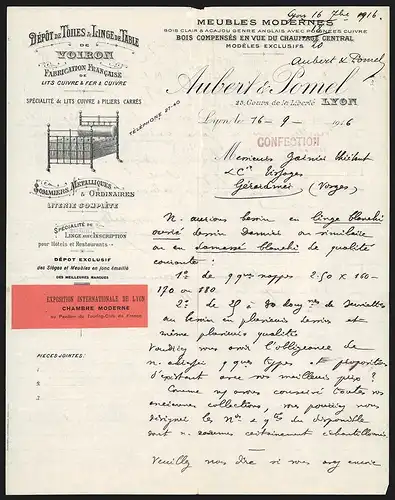 Lyon 16 7bre 1916
MEUBLES MODERNES
BOIS CLAIR & ACAJOU GENRE ANGLAIS AVEC POIGNÉES CUIVRE
BOIS COMPENSÉS EN VUE DU CHAUFFAGE CENTRAL
MODÈLES EXCLUSIFS
Aubert & Pomel
DÉPÔT DE TOILES & LINGE DE TABLE
DE
VOIRON
FABRICATION FRANÇAISE
DE
LITS CUIVRE & FER & CUIVRE
SPÉCIALITÉ DE LITS CUIVRE À PILIERS CARRÉS
TÉLÉPHONE 27-40
SOMMIERS MÉTALLIQUES
& ORDINAIRES
LITERIE COMPLÈTE
SPÉCIALITÉ DE
LINGE AVEC INSCRIPTION
pour Hôtels et Restaurants
DÉPOT EXCLUSIF
des Sièges et Meubles en jonc émaillé
DES MEILLEURES MARQUES
EXPOSITION INTERNATIONALE DE LYON
CHAMBRE MODERNE
au Pavillon du Touring-Club de France
PIECES JOINTES:
1
2
3
Aubert & Pomel
25 Cours de la Liberté LYON
Lyon le 16-9-1916
CONFECTION
Messieurs Garnier Thiébaut
& Cie Vosges
Gérardmer (Vosges)
N. aurions besoin en linge blanchi
ouvré dessin Damier ou similaire
ou en damassé blanchi de qualité
courante:
1° de q ques nappes 2.50 X 160-
170 ou 180
2° de 25 à 30 douz nes de serviettes
au besoin en plusieurs dessins et
même plusieurs qualités
Voudriez vous avoir l'obligeance de
n. q ques types et propositions
d'existant avec vos meilleurs prix?
Comme n/ avons conservé toutes vos
anciennes collections, vous pourriez nous
désigner les Nos du disponible
dont n. avons certainement échantillons.
Veuillez nous dire si vous avez encore